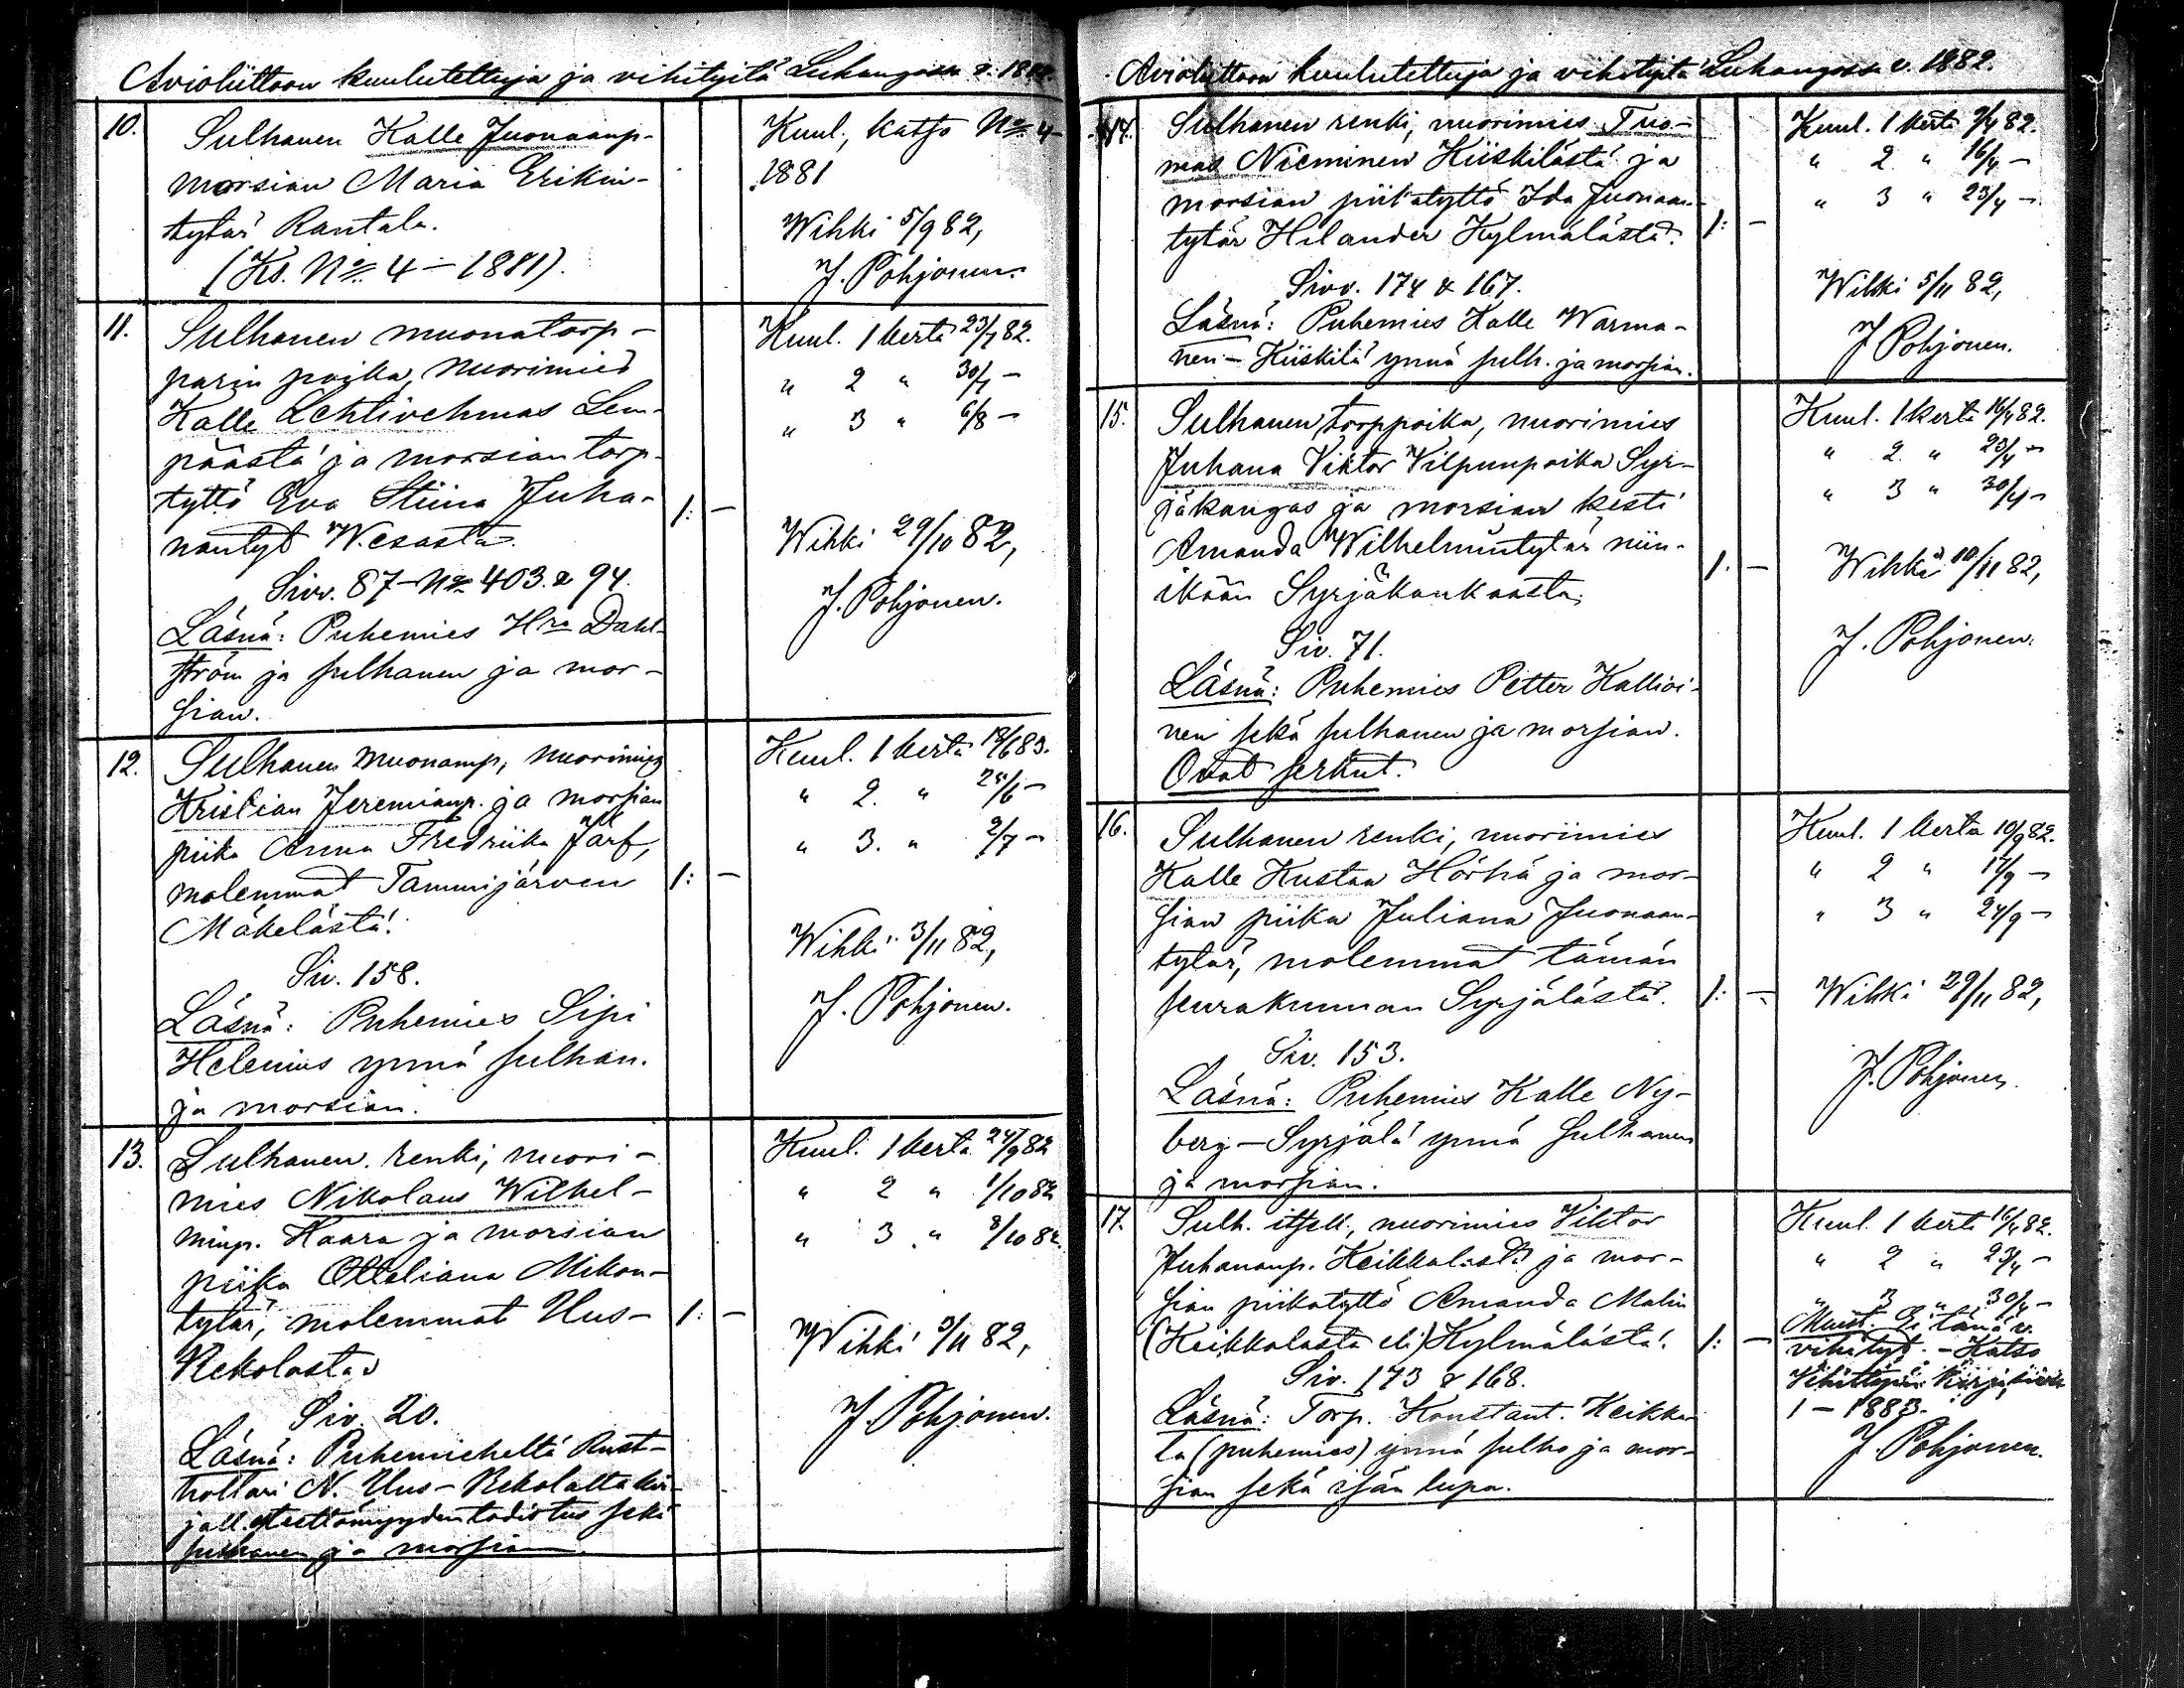 Avioliittoon kuulutettuja ja vihityitä Luhangassa v. 1882.
10.
Sulhanen Kalle Juonaanp.
morsian Maria Erikin-
tytär Rantala.
(Ks. No 4 – 1881).
Kuul., katso No 4–
1881
Wihki 5/9 82,
J. Pohjonen.
11.
Sulhanen muonatorp-
parin poika, nuorimies
Kalle Lehtivehmas Lem-
päästä ja morsian torp.
tyttö Eva Stiina Juha-
nantyt Wesasta.
Sivv. 87–No 403. & 94.
Läsnä: Puhemies Hra Dahl-
ström ja sulhanen ja mor-
sian.
1: –
Kuul. 1 kerta 23/7 82.
" 2 " 30/7 –
" 3 " 6/8 –
Wihki 29/10 82,
J. Pohjonen.
12.
Sulhanen muonamp, nuorimies
Kristian Jeremianp. ja morsian
piika Anna Fredriika Järf,
molemmat Tammijärven
Mäkelästä.
Siv. 158.
Läsnä: Puhemies Sipi
Helenius ynnä sulhan.
ja morsian.
1: –
Kuul. 1 kerta 18/6 83.
" 2. " 25/6 –
" 3. " 2/7 –
Wihki 3/11 82,
J. Pohjonen.
13.
Sulhanen renki, nuori-
mies Nikolaus Wilhel-
minp. Kaara ja morsian
piika Otteliana Mikon-
tytär, molemmat Uus-
Rekolasta
Siv. 20.
Läsnä: Puhemieheltä Rust-
hollari N. Uus-Rekolalta kir-
jall. esteettömyyden todistus sekä
sulhanen ja morsian.
1: –
Kuul. 1 kerta 24/9 82
" 2 " 1/10 82
" 3 " 8/10 82.
Wihki 5/11 82,
J. Pohjonen.
Avioliittoon kuulutettuja ja vihityitä Luhangossa v. 1882.
14.
Sulhanen renki, nuorimies Tuo-
mas Nieminen Kiiskilästä ja
morsian piikatyttö Ida Juonaan-
tytär Hilander Kylmälästä.
Sivv. 174 & 167.
Läsnä: Puhemies Kalle Warma-
nen – Kiiskilä ynnä sulh. ja morsian.
1: –
Kuul. 1 kerta 9/4 82.
" 2 " 16/4 –
" 3 " 23/4 –
Wihki 5/11 82,
J Pohjonen.
15.
Sulhanen, torppoika, nuorimies
Juhana Viktor Vilpunpoika Syr-
jäkangas ja morsian kesti
Amanda Wilhelmintytär niin-
ikään Syrjäkankaasta.
Siv. 71.
Läsnä: Puhemies Petter Kallioi-
nen sekä sulhanen ja morsian.
Ovat serkut.
1. –
Kuul. 1 kerta 16/4 82.
" 2. " 23/4 –
" 3 " 30/4 –
Wihki 10/11 82,
J. Pohjonen.
16.
Sulhanen renki, nuorimies
Kalle Kustaa Hörhä ja mor-
sian piika Juliana Juonaan-
tytär, molemmat tämän
seurakunnan Syrjälästä.
Siv. 153.
Läsnä: Puhemies Kalle Ny-
berg – Syrjälä ynnä sulhanen
ja morsian.
1: –
Kuul. 1 kerta 10/9 82.
" 2 " 17/9 –
" 3 " 24/9 –
Wihki 29/11 82,
J. Pohjonen.
17.
Sulh. itsell., nuorimies Viktor
Juhananp. Keikkalasta ja mor-
sian piikatyttö Amanda Malin
(Keikkalasta eli) Kylmälästä.
Siv. 173 & 168.
Läsnä: Torp. Konstant. Keikka-
la (puhemies) ynnä sulho ja mor-
sian sekä isän lupa.
1: –
Kuul. 1 kerta 16/4 82.
" 2 " 23/4 –
" 3 " 30/4 –
Muist. Ei tänä v.
vihityt. – Katso
Vihittyin kirja, sivu
1 – 1883.
J. Pohjonen.